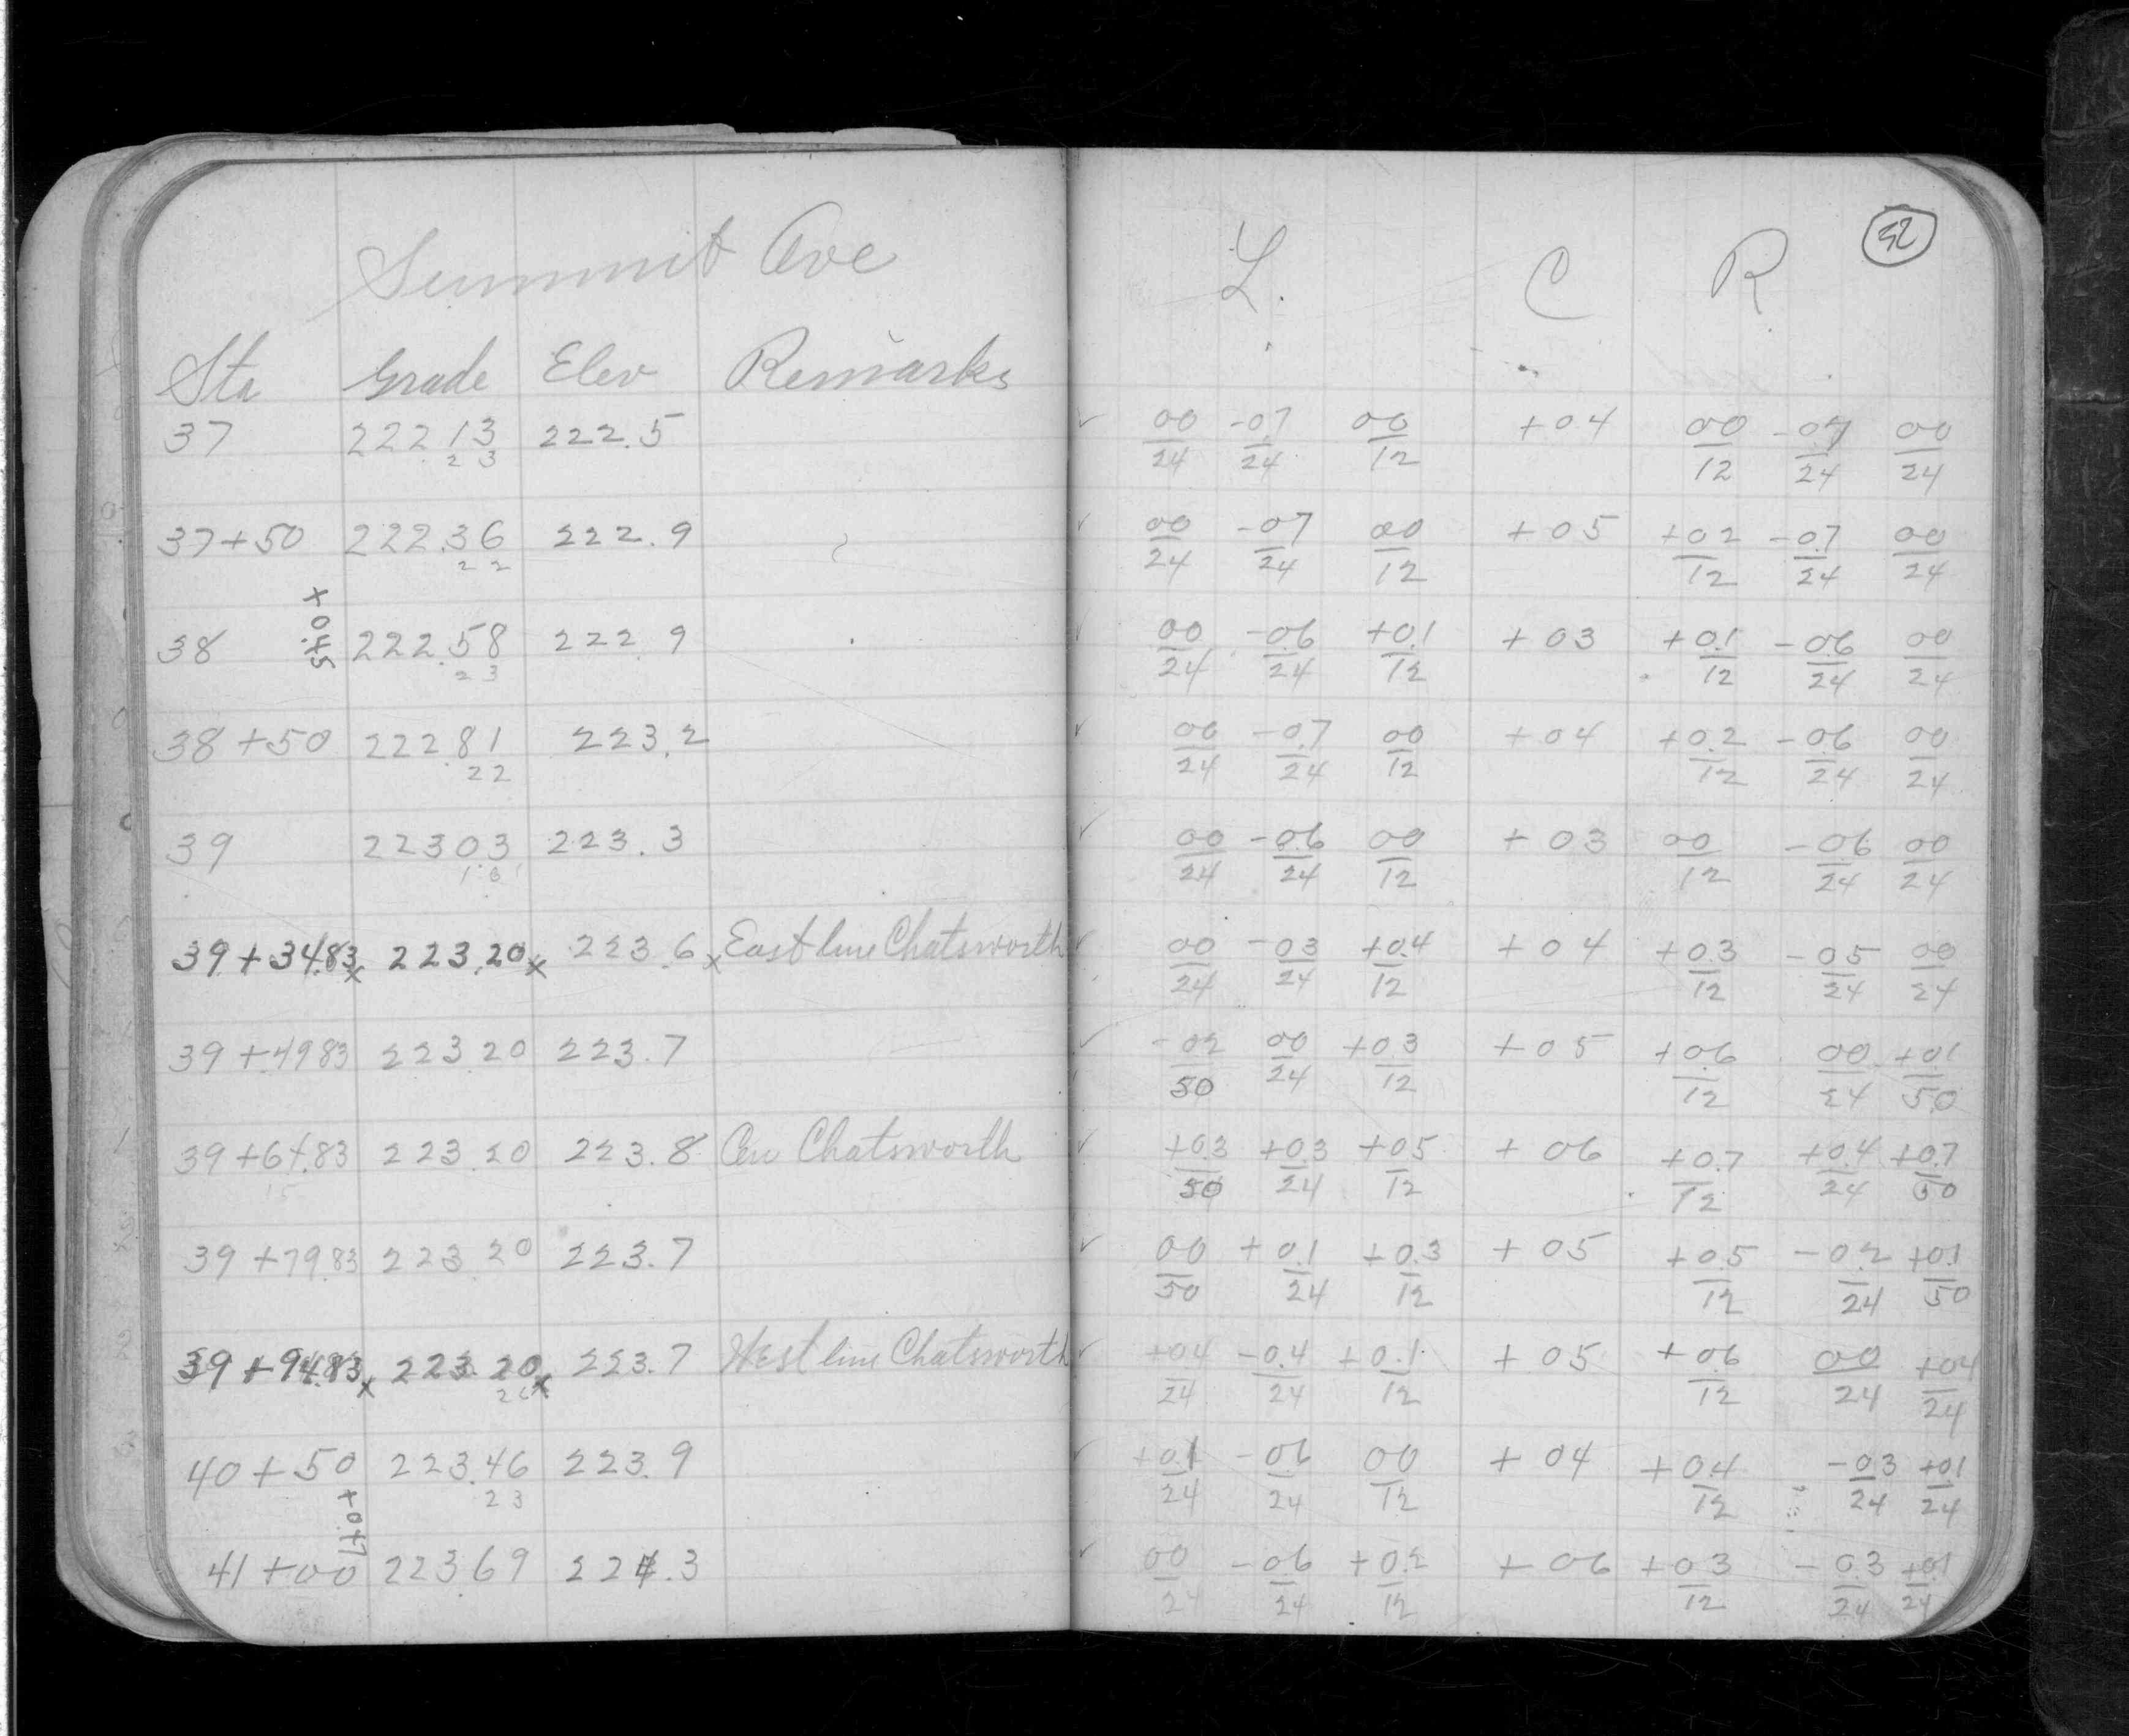 Summit Ave
Sta Grade Elev Remarks
37 222.13 222.5
2 3
37+50 222.36 222.9
2 2
+0.45
38 222.58 222.9
2 3
38+50 222.81 223.2
2 2
39 223 03 223.3
39+34.83x 223.20x 223.6x East line Chatsworth
39+49 83 223 20 223.7
39+64.83 223.20 223.8 Cen Chatsworth
15
39+79.83 223.20 223.7
39+94.83x 223.20x 223.7 West line Chatsworth
40+50 223.46 223.9
2 3
+0.47
41+00 223.69 224.3
L. C R 32
00/24 -07/24 00/12 +04 00/12 -07/24 00/24
00/24 -07/24 00/12 +05 +02/12 -0.7/24 00/24
00/24 -06/24 +0.1/12 +03 +0.1/12 -06/24 00/24
00/24 -0.7/24 00/12 +04 +0.2/12 -06/24 00/24
00/24 -0.6/24 00/12 +03 00/12 -06/24 00/24
00/24 -03/24 +0.4/12 +04 +0.3/12 -05/24 00/24
-02/50 00/24 +03/12 +05 +0.6/12 00/24 +01/50
+0.3/50 +0.3/24 +05/12 +06 +0.7/12 +0.4/24 +0.7/50
00/50 +0.1/24 +0.3/12 +05 +0.5/12 -02/24 +0.1/50
+04/24 -0.4/24 +0.1/12 +05 +06/12 00/24 +04/24
+0.1/24 -06/24 00/12 +04 +04/12 -03/24 +01/24
00/24 -06/24 +0.2/12 +06 +03/12 -0.3/24 +01/24